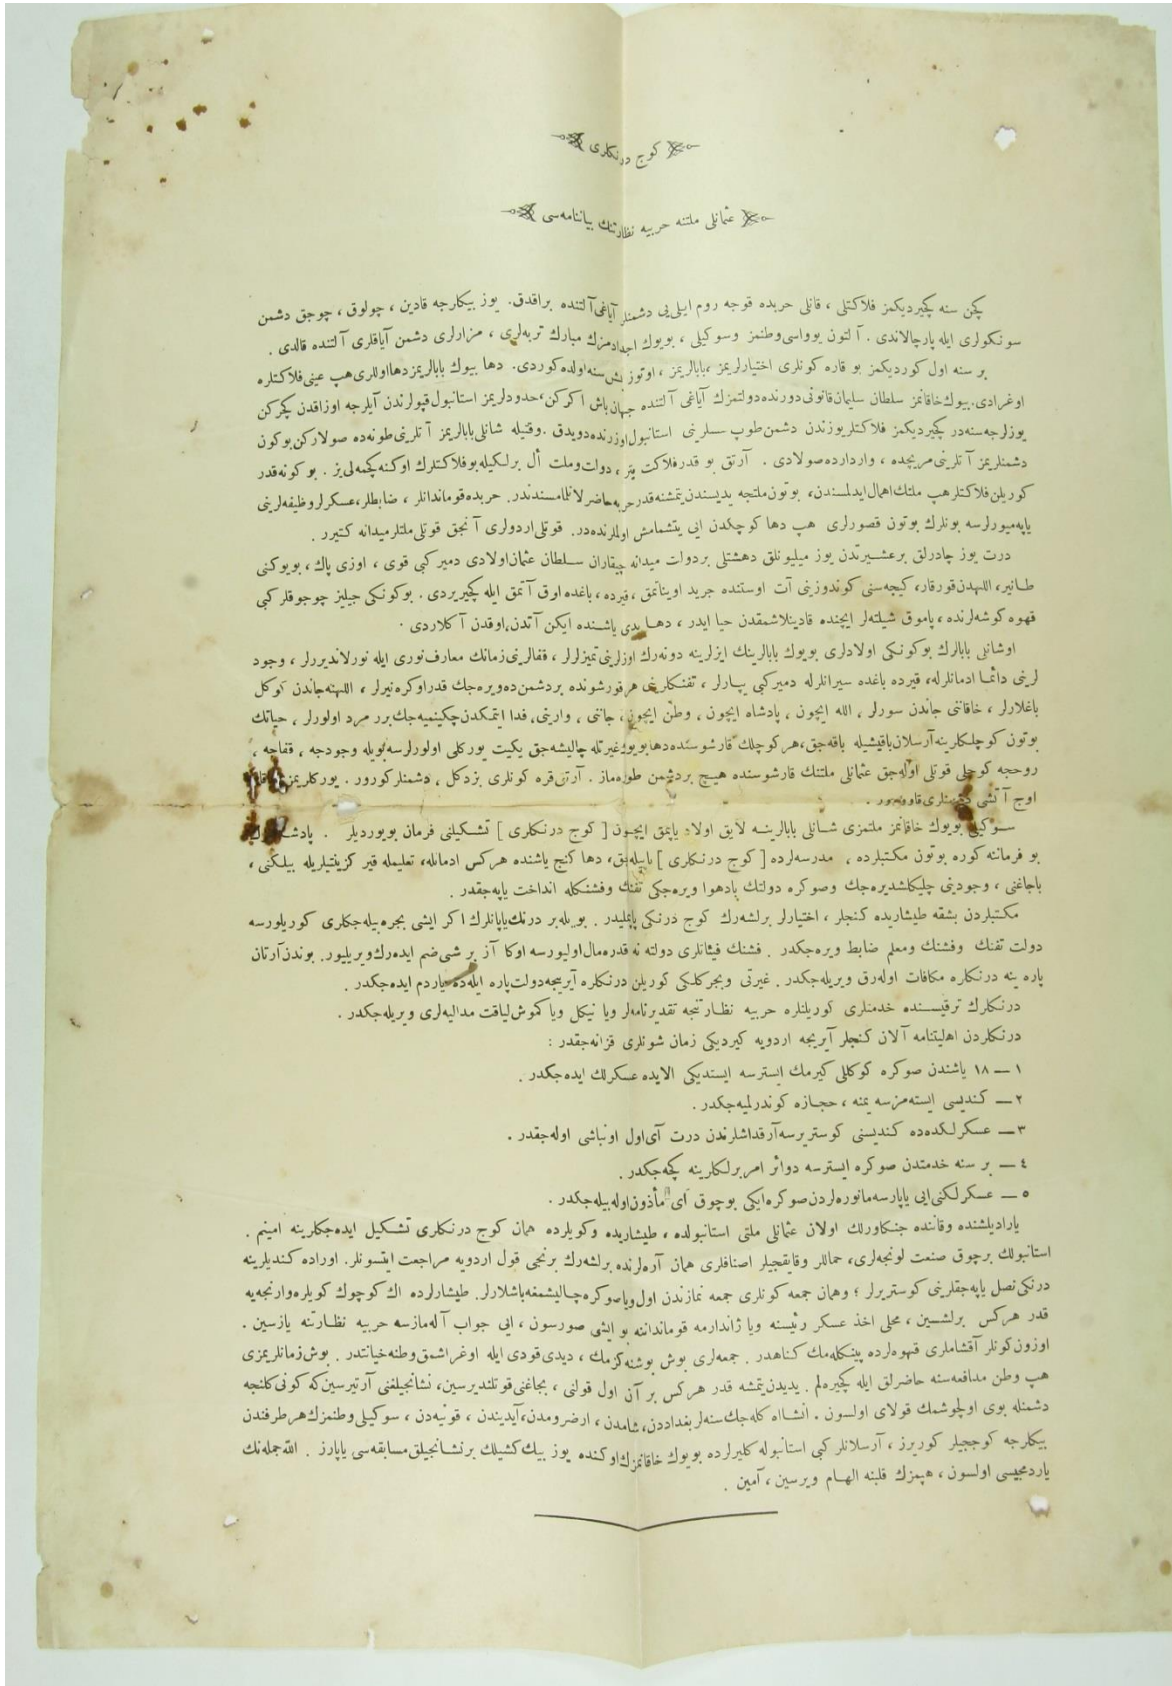 كوج درنكلری
عثمانلی ملتنه حربیه نظارتنك بیاننامه‌سی
كچن سنه كچیردیكمز فلاكتلی ، قانلی حربده قوجه روم ایلی‌یی دشمنلر آیاغی آلتنده براقدق. یوز بیكلرجه قادین ، چولوق ، چوجق دشمن
سونكولری ایله پارچالاندی . آلتون یوواسی وطنمز وسوكیلی ، بویوك اجدادمزك مبارك تربه‌لری ، مزارلری دشمن آیاقلری آلتنده قالدی .
بر سنه اول كوردیكمز بو قاره كونلری اختیارلریمز ، بابالریمز ، اوتوز بش سنه اولده كوردی. دها بیوك بابالریمز دها اوللری هپ عینی فلاكتلره
اوغرادی. بیوك خاقانمز سلطان سلیمان قانونی دورنده دولتمزك آیاغی آلتنده جهان باش اكركن، حدودلریمز استانبول قپولرندن آیلرجه اوزاقدن كچركن
یوزلرجه سنه‌در كچیردیكمز فلاكتلر یوزندن دشمن طوپ سسلرینی استانبول اوزرنده دویدق . وقتیله شانلی بابالریمز آتلرینی طونه‌ده صولاركن بوكون
دشمنلریمز آتلرینی مریجده ، واردارده صولادی . آرتق بو قدر فلاكت یتر ، دولت وملت أل برلكیله بو فلاكتلرك اوكنه كچمه‌لی‌یز . بو كونه قدر
كوریلن فلاكتلر هپ ملتك اهمال ایدلمسندن، بوتون ملتجه یدیسندن یتمشنه قدر حربه حاضرلانلمامسندندر. حربده قوماندانلر ، ضابطلر، عسكرلر وظیفه‌لرینی
یاپه‌میورلرسه بونلرك بوتون قصورلری هپ دها كوچكدن ایی یتشمامش اوللرنده‌در. قوتلی اردولری آنجق قوتلی ملتلر میدانه كتیرر .
درت یوز چادرلق بر عشیرتدن یوز میلیونلق دهشتلی بر دولت میدانه چیقاران سلطان عثمان اولادی دمیر كبی قوی ، اوزی پاك ، بویوكنی
طانیر، اللهدن قورقار، كیجه‌سنی كوندوزینی آت اوستنده جرید اویناتمق ، قیرده ، باغده اوق آتمق ایله كچیریردی . بوكونكی جیلیز چوجوقلر كبی
قهوه كوشه‌لرنده ، پاموق شیلته‌لر ایچنده قادینلاشمقدن حیا ایدر ، دها یدی یاشنده ایكن آتدن، اوقدن آكلاردی .
اوشانلی بابالرك بوكونكی اولادلری بویوك بابالرینك ایزلرینه دونه‌رك اوزلرینی تمیزلرلر ، قفالرینی زمانك معارف نوری ایله نورلاندیررلر ، وجود
لرینی دائما ادمانلرله، قیرده باغده سیرانلرله دمیر كبی یپارلر ، تفنكلرینی هر قورشونده بر دشمن ده‌ویره‌جك قدر اوكره‌نیرلر ، اللهنه جاندن كوكل
باغلارلر ، خاقاننی جاندن سورلر ، الله ایچون ، پادشاه ایچون ، وطن ایچون ، جاننی ، وارینی، فدا ایتمكدن چكینمیه‌جك برر مرد اولورلر ، حیاتك
بوتون كوچلكلرینه آرسلان باقیشیله باقه‌جق، هر كوچلك قارشوسنده دها بویوك غیرتله چالیشه‌جق یكیت یوركلی اولورلرسه بویله وجودجه ، قفاجه ،
روحجه كوچلی قوتلی اوله‌جق عثمانلی ملتنك قارشوسنده هیچ بر دشمن طوره‌ماز . آرتق قره كونلری بزدكل ، دشمنلر كورور . یوركلریمزی
اوج آتشی دشمنلری قاوورور .
سوكیلی بویوك خاقانمز ملتمزی شانلی بابالرینه لایق اولاد یاپمق ایچون [ كوج درنكلری ] تشكیلنی فرمان بویوردیلر .
بو فرماننه كوره بوتون مكتبلرده ، مدرسه‌لرده [ كوج درنكلری ] یاپیله‌جق، دها كنج یاشنده هركس ادمانله، تعلیمله قیر كزینتیلریله بیلكنی ،
باجاغنی ، وجودینی چلیكلشدیره‌جك وصوكره دولتك بادهوا ویره‌جكی تفنك وفشنكله انداخت یاپه‌جقدر .
مكتبلردن بشقه طیشاریده كنجلر ، اختیارلر برلشه‌رك كوج درنكی یاپملیدر . بویله بر درنك یاپانلرك اكر ایشی بجره‌بیله‌جكلری كوریلورسه
دولت تفنك وفشنك ومعلم ضابط ویره‌جكدر . فشنك فیئاتلری دولته نه قدره مال اولیورسه اوكا آز بر شی ضم ایده‌رك ویریلیور. بوندن آرتان
پاره ینه درنكلره مكافات اوله‌رق ویریله‌جكدر . غیرتی وبجركلكی كوریلن درنكلره آیریجه دولت پاره ایله‌ده یاردم ایده‌جكدر .
درنكلرك ترقیسنده خدمتلری كوریلنلره حربیه نظارتنجه تقدیرنامه‌لر ویا نیكل ویا كموش لیاقت مدالیه‌لری ویریله‌جكدر .
درنكلردن اهلیتنامه آلان كنجلر آیریجه اردویه كیردیكی زمان شونلری قزانه‌جقدر :
١ — ١٨ یاشندن صوكره كوكللی كیرمك ایسترسه ایستدیكی آلایده عسكرلك ایده‌جكدر .
٢ — كندیسی ایسته‌مزسه یمنه ، حجازه كوندرلمیه‌جكدر .
٣ — عسكرلكده‌ده كندیسنی كوستریرسه آرقداشلرندن درت آی اول اونباشی اوله‌جقدر .
٤ — بر سنه خدمتدن صوكره ایسترسه دوائر امربرلكلرینه كچه‌جكدر .
٥ — عسكرلكنی ایی یاپارسه مانوره‌لردن صوكره ایكی بوچوق آی مأذون اوله‌بیله‌جكدر .
یارادیلشنده وقاننده جنكاورلك اولان عثمانلی ملتی استانبولده ، طیشاریده وكویلرده همان كوج درنكلری تشكیل ایده‌جكلرینه امینم .
استانبولك برچوق صنعت لونجه‌لری، حماللر وقایقجیلر اصنافلری همان آره‌لرنده برلشه‌رك برنجی قول اردویه مراجعت ایتسونلر. اوراده كندیلرینه
درنكی نصل یاپه‌جقلرینی كوستریرلر ؛ وهمان جمعه كونلری جمعه نمازندن اول ویا صوكره چالیشمغه باشلارلر. طیشارلرده اك كوچوك كویلره وارنجه‌یه
قدر هركس برلشسین ، محلی اخذ عسكر رئیسنه ویا ژاندارمه قومانداننه بو ایشی صورسون ، ایی جواب آله‌مازسه حربیه نظارتنه یازسین .
اوزون كونلر آقشاملری قهوه‌لرده پینكله‌مك كناهدر . جمعه‌لری بوش بوشنه كزمك ، دیدی قودی ایله اوغراشمق وطنه خیانتدر . بوش زمانلریمزی
هپ وطن مدافعه‌سنه حاضرلق ایله كچیره‌لم . یدیدن یتمشه قدر هركس بر آن اول قولنی ، بجاغنی قوتلندیرسین، نشانجیلغنی آرتیرسین كه كونی كلنجه
دشمنله بوی اولچوشمك قولای اولسون . انشاالله كله‌جك سنه‌لر بغداددن، شامدن ، ارضرومدن، آیدیندن ، قونیه‌دن ، سوكیلی وطنمزك هر طرفندن
بیكلرجه كوججیلر كوریرز ، آرسلانلر كبی استانبوله كلیرلرده بویوك خاقانمزك اوكنده یوز بیك كشیلك بر نشانجیلق مسابقه‌سی یاپارز . الله جمله‌نك
یاردمجیسی اولسون ، هپمزك قلبنه الهام ویرسین ، آمین .